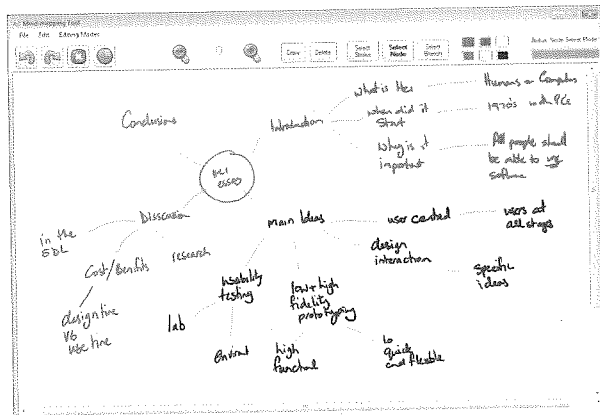 Mind-mapping Tool
File Edit Editing Modes
Copy
Delete
Select
Stroke
Select
Node
Select
Branch
Conclusions
Introduction
what is HCI
Humans or Computers
when did it
start
1970's with PCs
Why is it
important
All people should
be able to use
software
HCI
essay
Disscusion
in the
SDL
Cost/Benefits
research
design time
vs
use time
main Ideas
user centred
users at
all stages
design
interaction
specific
ideas
usability
testing
lab
low + high
fidelity
prototyping
high
functional
lo
quick
and flexible